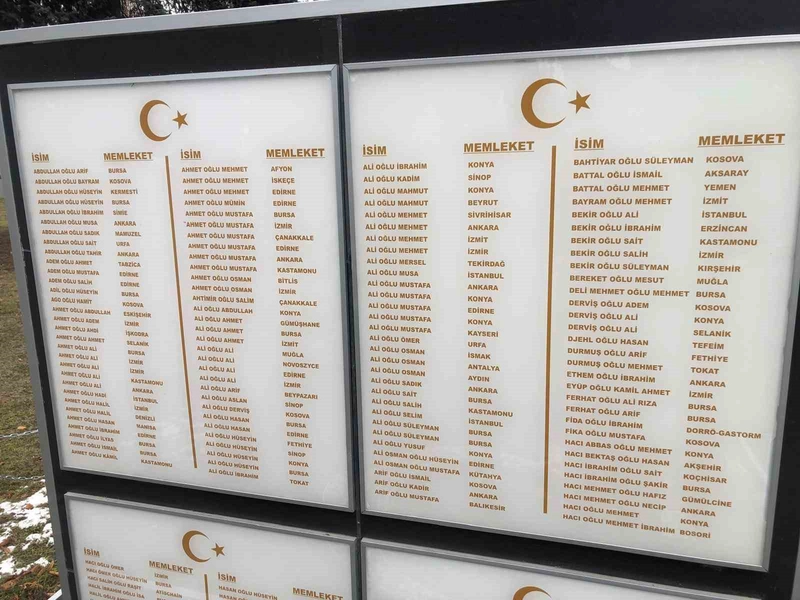 İSİM MEMLEKET
ABDULLAH OĞLU ARİF BURSA
ABDULLAH OĞLU BAYRAM KOSOVA
ABDULLAH OĞLU HÜSEYİN KERMESTİ
ABDULLAH OĞLU HÜSEYİN BURSA
ABDULLAH OĞLU İBRAHİM SİMİE
ABDULLAH OĞLU MUSA ANKARA
ABDULLAH OĞLU SADIK MAMUZEL
ABDULLAH OĞLU SAİT URFA
ABDULLAH OĞLU TAHİR ANKARA
ADEM OĞLU AHMET TABZICA
ADEM OĞLU MUSTAFA EDİRNE
ADEM OĞLU SALİH EDİRNE
ADİL OĞLU HÜSEYİN BURSA
AGO OĞLU HAMİT KOSOVA
AHMET OĞLU ABDULLAH ESKİŞEHİR
AHMET OĞLU ADEM İZMİR
AHMET OĞLU AHDİ İŞKODRA
AHMET OĞLU AHMET SELANİK
AHMET OĞLU ALİ BURSA
AHMET OĞLU ALİ İZMİR
AHMET OĞLU ALİ İZMİR
AHMET OĞLU ALİ KASTAMONU
AHMET OĞLU ALİ ANKARA
AHMET OĞLU HADİ İSTANBUL
AHMET OĞLU HALİL İZMİR
AHMET OĞLU HALİL DENİZLİ
AHMET OĞLU HASAN MANİSA
AHMET OĞLU İBRAHİM EDİRNE
AHMET OĞLU İLYAS BURSA
AHMET OĞLU İSMAİL BURSA
AHMET OĞLU KAMİL KASTAMONU
İSİM
AHMET OĞLU MEHMET
AHMET OĞLU MEHMET
AHMET OĞLU MEHMET
AHMET OĞLU MÜMİN
AHMET OĞLU MUSTAFA
AHMET OĞLU MUSTAFA
AHMET OĞLU MUSTAFA
AHMET OĞLU MUSTAFA
AHMET OĞLU MUSTAFA
AHMET OĞLU MUSTAFA
AHMET OĞLU OSMAN
AHMET OĞLU OSMAN
AHTİMİR OĞLU SALİM
ALİ OĞLU ABDULLAH
ALİ OĞLU AHMET
ALİ OĞLU AHMET
ALİ OĞLU AHMET
ALİ OĞLU ALİ
ALİ OĞLU ALİ
ALİ OĞLU ALİ
ALİ OĞLU ARİF
ALİ OĞLU ASLAN
ALİ OĞLU DERVİŞ
ALİ OĞLU HASAN
ALİ OĞLU HASAN
ALİ OĞLU HÜSEYİN
ALİ OĞLU HÜSEYİN
ALİ OĞLU HÜSEYİN
ALİ OĞLU İBRAHİM
MEMLEKET
AFYON
İSKEÇE
EDİRNE
EDİRNE
BURSA
İZMİR
ÇANAKKALE
EDİRNE
ANKARA
KASTAMONU
BİTLİS
İZMİR
ÇANAKKALE
KONYA
GÜMÜŞHANE
BURSA
İZMİT
MUĞLA
NOVOSZYCE
EDİRNE
İZMİR
BEYPAZARI
SİNOP
KOSOVA
BURSA
EDİRNE
FETHİYE
SİNOP
KONYA
BURSA
TOKAT
İSİM
ALİ OĞLU İBRAHİM
ALİ OĞLU KADİM
ALİ OĞLU MAHMUT
ALİ OĞLU MAHMUT
ALİ OĞLU MEHMET
ALİ OĞLU MEHMET
ALİ OĞLU MEHMET
ALİ OĞLU MEHMET
ALİ OĞLU MERSEL
ALİ OĞLU MUSA
ALİ OĞLU MUSTAFA
ALİ OĞLU MUSTAFA
ALİ OĞLU MUSTAFA
ALİ OĞLU MUSTAFA
ALİ OĞLU MUSTAFA
ALİ OĞLU ÖMER
ALİ OĞLU OSMAN
ALİ OĞLU OSMAN
ALİ OĞLU OSMAN
ALİ OĞLU SADIK
ALİ OĞLU SAİT
ALİ OĞLU SALİH
ALİ OĞLU SELİM
ALİ OĞLU SÜLEYMAN
ALİ OĞLU SÜLEYMAN
ALİ OĞLU YUSUF
ALİ OSMAN OĞLU HÜSEYİN
ALİ OSMAN OĞLU MUSTAFA
ARİF OĞLU İSMAİL
ARİF OĞLU KADİR
ARİF OĞLU MUSTAFA
MEMLEKET
KONYA
SİNOP
KONYA
BEYRUT
SİVRİHİSAR
ANKARA
İZMİT
İZMİR
TEKİRDAĞ
İSTANBUL
ANKARA
KONYA
EDİRNE
KONYA
KAYSERİ
URFA
ISMAK
ANTALYA
AYDIN
ANKARA
BURSA
KASTAMONU
İSTANBUL
BURSA
BURSA
KONYA
EDİRNE
KÜTAHYA
KOSOVA
ANKARA
BALIKESİR
İSİM
BAHTİYAR OĞLU SÜLEYMAN
BATTAL OĞLU İSMAİL
BATTAL OĞLU MEHMET
BAYRAM OĞLU MEHMET
BEKİR OĞLU ALİ
BEKİR OĞLU İBRAHİM
BEKİR OĞLU SAİT
BEKİR OĞLU SALİH
BEKİR OĞLU SÜLEYMAN
BEREKET OĞLU MESUT
DELİ MEHMET OĞLU MEHMET
DERVİŞ OĞLU ADEM
DERVİŞ OĞLU ALİ
DERVİŞ OĞLU ALİ
DJEHL OĞLU HASAN
DURMUŞ OĞLU ARİF
DURMUŞ OĞLU MEHMET
ETHEM OĞLU İBRAHİM
EYÜP OĞLU KAMİL AHMET
FERHAT OĞLU ALİ RIZA
FERHAT OĞLU ARİF
FİDA OĞLU İBRAHİM
FİKA OĞLU MUSTAFA
HACI ABBAS OĞLU MEHMET
HACI BEKTAŞ OĞLU HASAN
HACI İBRAHİM OĞLU SAİT
HACI İBRAHİM OĞLU ŞAKİR
HACI MEHMET OĞLU HAFIZ
HACI MEHMET OĞLU NECİP
HACI OĞLU MEHMET
HACI OĞLU MEHMET İBRAHİM
MEMLEKET
KOSOVA
AKSARAY
YEMEN
İZMİT
İSTANBUL
ERZİNCAN
KASTAMONU
İZMİR
KIRŞEHİR
MUĞLA
BURSA
KOSOVA
KONYA
SELANİK
TEFEİM
FETHİYE
TOKAT
ANKARA
İZMİR
BURSA
BURSA
DORRO-GASTORM
KOSOVA
KONYA
AKŞEHİR
KOÇHİSAR
BURSA
GÜMÜLCİNE
ANKARA
KONYA
BOSORİ
İSİM MEMLEKET
HACI OĞLU ÖMER İZMİR
HACI ÖMER OĞLU HÜSEYİN BURSA
HACI SALİH OĞLU RAŞİT
HALİL İBRAHİM OĞLU İSA
İSİM MEMLEKET
HASAN OĞLU HÜSEYİN